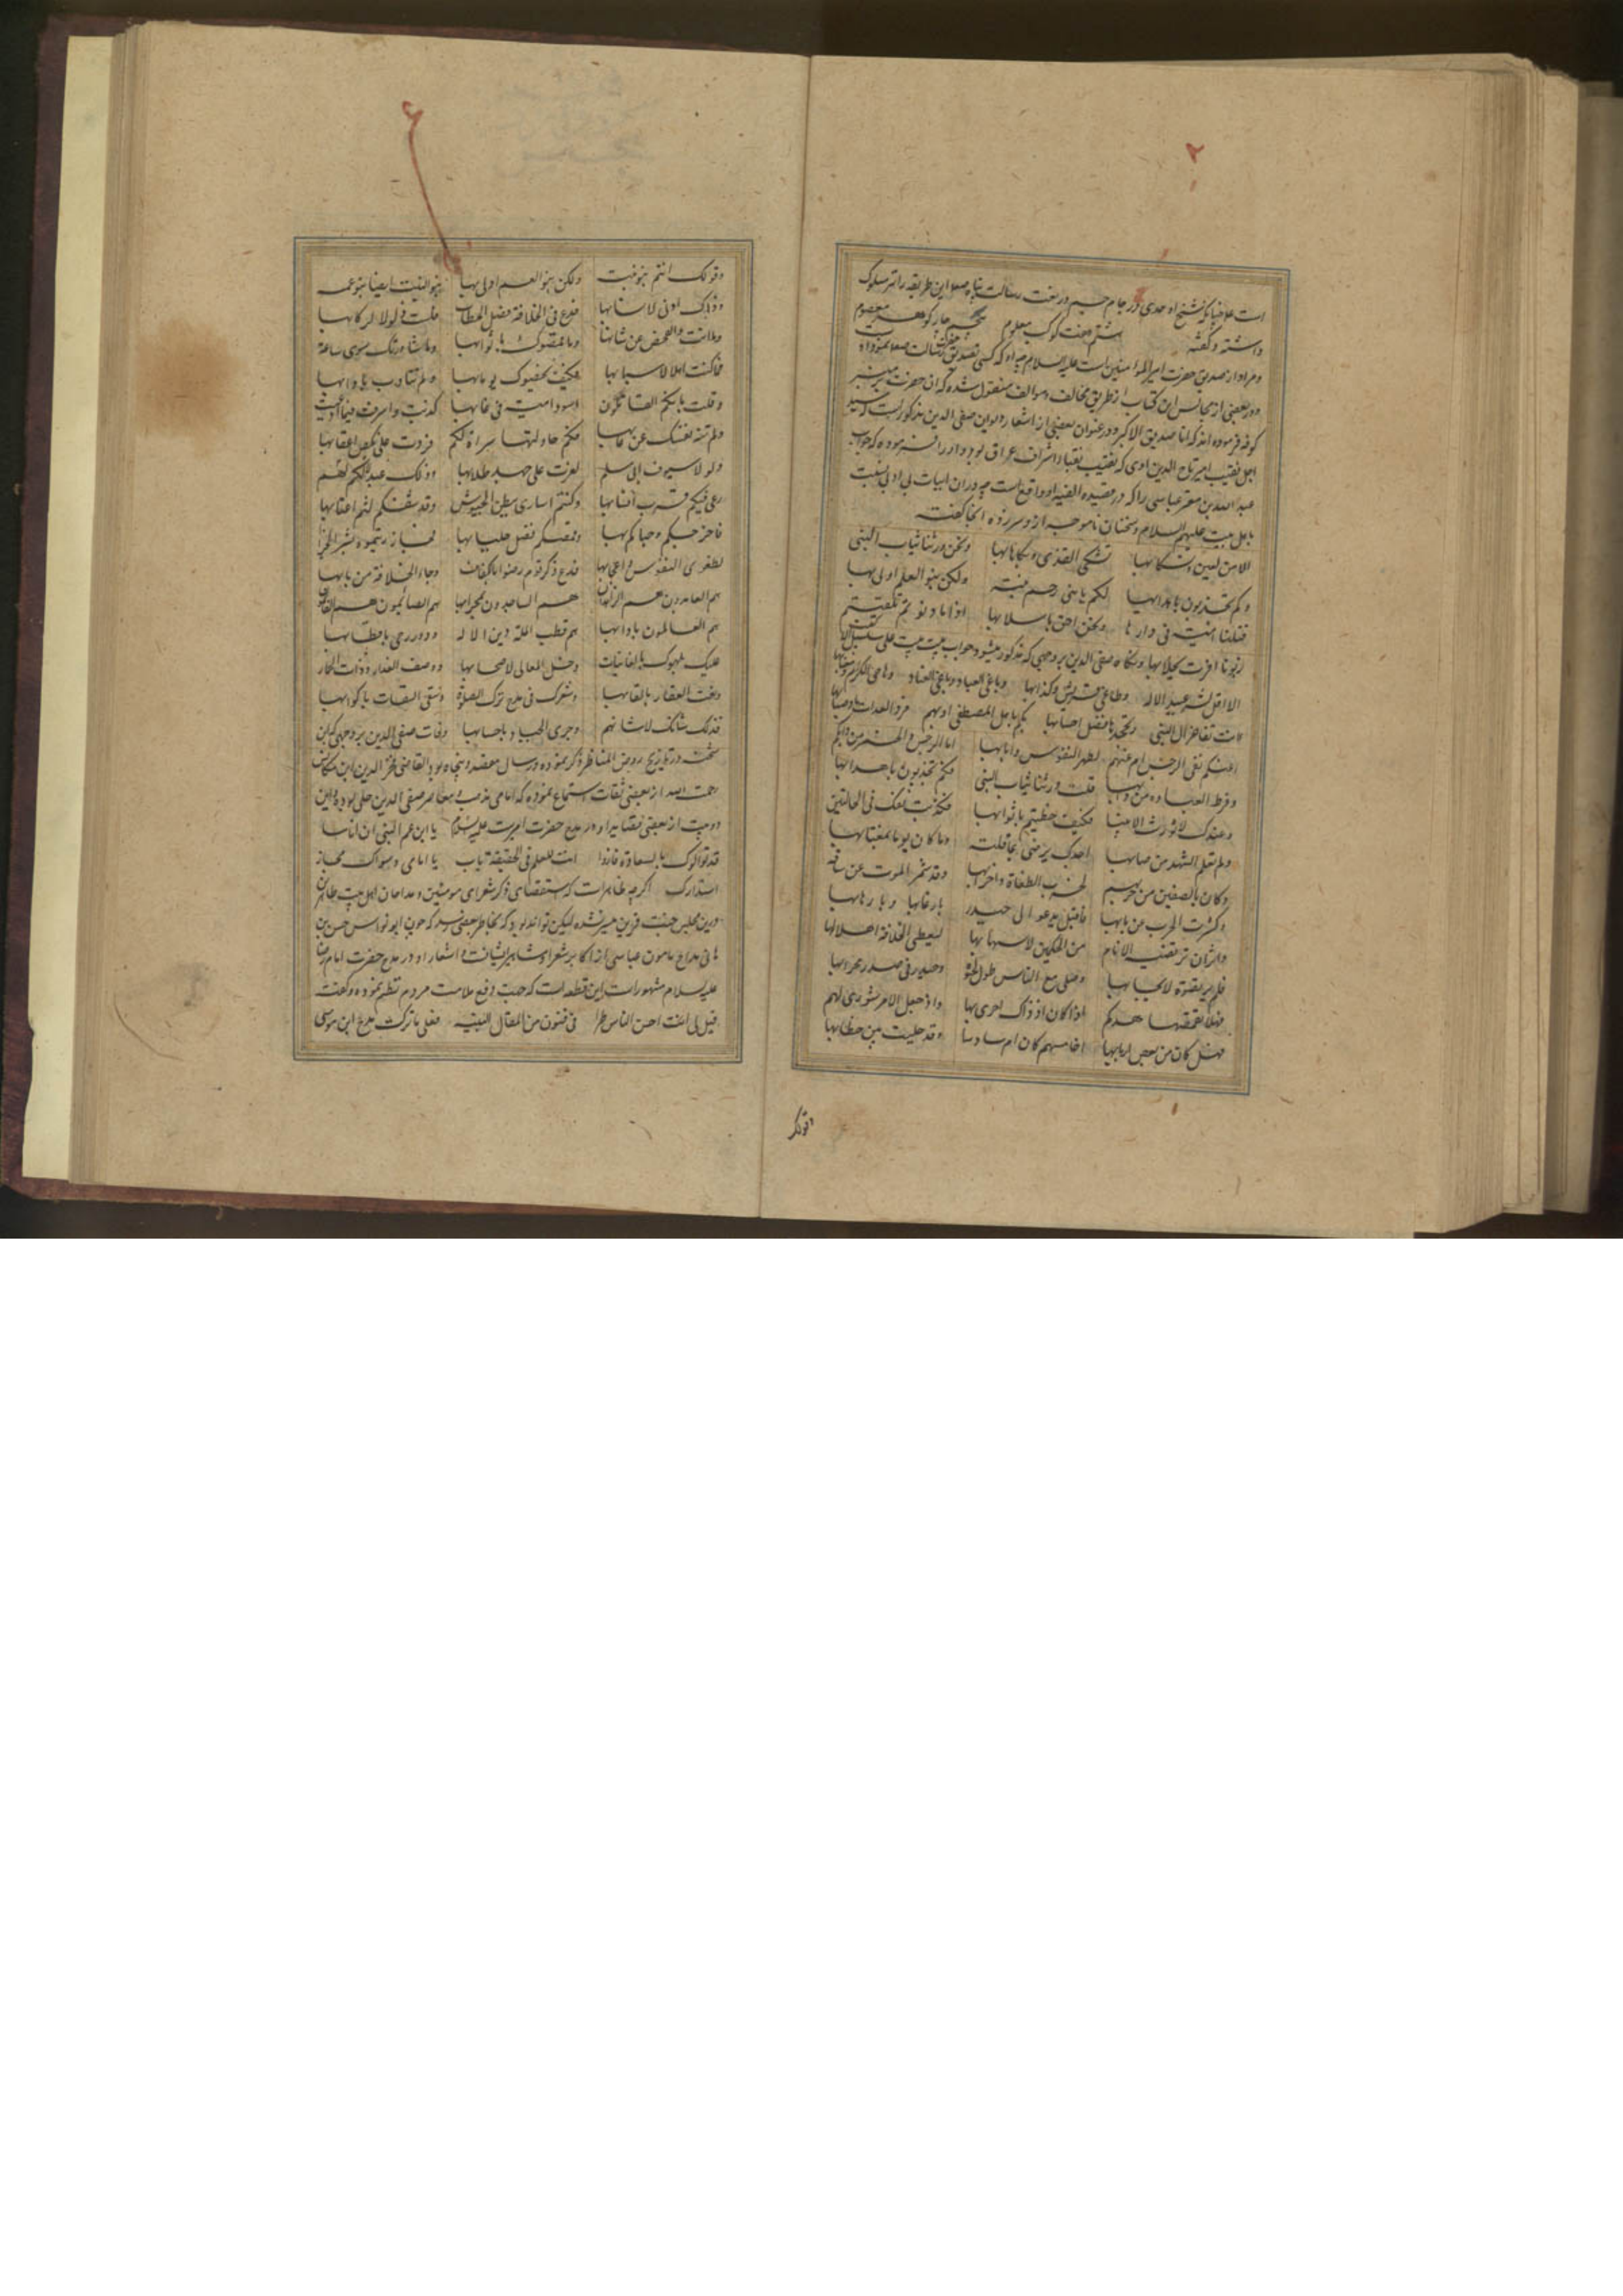 ۲
است علاء
داشته و گفته ششم هفت کوکب معلوم
و مراد از صدیق حضرت امیرالمؤمنین است علیه السلام چه او که کسی تصدیق رسالت
و در بعضی از مجالس این کتاب از طریق مخالف و موالف منقول شده که آن حضرت بر منبر
کوفه فرموده اند که انا صدیق الاکبر و در عنوان بعضی از اشعار دیوان صفی الدین مذکور است که سید
اجل نقیب امیر تاج الدین آوی که نقیب نقباء و اشراف عراق بود او را فرموده که جواب
عبد الله بن معتز عباسی را که در قصیده الفیه او واقع است و در آن ابیات بی ادبی نسبت
باهل بیت علیهم السلام و سخنان ناموجه از او سر زده آنجا که گفت
الا من لعین و تسکابها تشکی القذی و بکاها بها و نحن ورثنا ثیاب النبی
و کم تجذبون باهدابها لکم یا بنی رحم بنته ولکن بنو العلم اولی بها
قتلنا امیة فی دارها و نحن احق باسلابها اذا ما دنوتم تلقیتم
زبونا اقرت بجلابها و شاه صفی الدین بر وجهی که مذکور میشود جواب بیت بیت علی سبیل
الا قل لشر عبید الاله و طاغی قریش و کذابها و باغی العباد و باغی العناد و هاجی الکرام و مغتابها
اانت تفاخر آل النبی و تجحدها فضل احسابها بکم باهل المصطفی ام بهم فرد العداة باوصابها
اعنکم نفی الرجس ام عنهم لطهر النفوس و البابها اما الرجس و الخمر من دابکم
و فرط العبادة من دابها و قلت ورثنا ثیاب النبی فکم تجذبون باهدابها
و عندک لا تورث الانبیا فکیف حظیتم باثوابها فکذبت نفسک فی الحالتین
و لم تعلم الشهد من صابها اجدک یرضی بما قلته و ما کان یوما بمرتابها
و کان بالصفین من حزبهم لحرب الطغاة و احزابها و قد شمر الموت عن ساقه
و کشرت الحرب عن نابها فاقبل یدعو الی حیدر بارغابها و بارهابها
و آثر ان ترتضیه الانام من الحکمین لاسبابها لیعطی الخلافة اهلا لها
فلم یرتضوه لایجابها و صلی مع الناس طول الحیوة و حیدر فی صدر محرابها
فهلا تقمصها جدکم اذا کان اذ ذاک احری بها و اذ جعل الامر شوری لهم
فهل کان من بعض اربابها اخامسهم کان ام سادسا و قد جلیت بین خطابها
وقولک
۶
و قولک انتم بنو بنته ولکن بنو العم اولی بها بنو البنت ایضا بنو عمه
و ذلک ادنی لانسابها فدع فی الخلافة فصل الخطاب فلیست ذلولا لرکابها
و ما انت و الفحص عن شانها و ما قمصوک باثوابها و ما شاورتک سوی ساعة
فما کنت اهلا لاسبابها فکیف یخصوک یوما بها و لم تتادب بآدابها
و قلت بانکم القاتلون اسود امیة فی غابها کذبت و اسرفت فیما ادعیت
و لم تنه نفسک عن عابها فکم حاولتها سراة لکم فردت علی نکص اعقابها
و لولا سیوف ابی مسلم لعزت علی جهد طلابها و ذلک عبد لکم لا لهم
رعی فیکم قرب انسابها و کنتم اساری ببطن الحبوس و قد شفکم لثم اعتابها
فاخرجکم و حباکم بها و قمصکم فضل جلبابها فجازیتموه بشر الجزا
لطغوی النفوس و اعجابها فدع ذکر قوم رضوا بالکفاف و جاء الخلافة من بابها
هم الزاهدون هم العابدون هم الساجدون بمحرابها هم الصائمون هم القائمون
هم العالمون بآدابها هم قطب ملة دین الاله و دور رحی باقطابها
علیک بلهوک بالغانیات و خل المعالی لاصحابها و وصف العذار و ذات الخمار
و نعت العقار بالقابها و شعرک فی مدح ترک الصلوة و سقی السقات باکوابها
فذلک شانک لا شانهم و جری الجیاد باحسابها وفات صفی الدین بر وجهی که ابن
شحنه در تاریخ روض المناظر ذکر نموده در سال هفتصد و پنجاه بود القاضی فخر الدین ابن مکانس
رحمت الله از بعضی ثقات استماع نموده که امامی مذهب و معاصر صفی الدین حلی بوده و این
دو بیت از بعضی قصاید او در مدح حضرت امیر است علیه السلام یا ابن عم النبی ان اناسا
قد توالوک بالسعادة فازوا انت للعلم فی الحقیقة باب یا امامی و سواک مجاز
استدراک اگرچه ظاهر است که استقصای ذکر شعرای مومنین و مداحان اهل بیت طاهرین
درین مجلس جنت قرین میسر نشده لیکن تواند بود که بخاطر بعضی رسد که چون ابو نواس حسن بن
هانی مداح مامون عباسی از اکابر شعرا و مشاهیر ایشانست و اشعار او در مدح حضرت امام رضا
علیه السلام مشهور است این قطعه است که جهت دفع ملامت مردم نظم نموده و گفته
قیل لی انت احسن الناس طرا فی فنون من المقال النبیه فعلی ما ترکت مدح ابن موسی